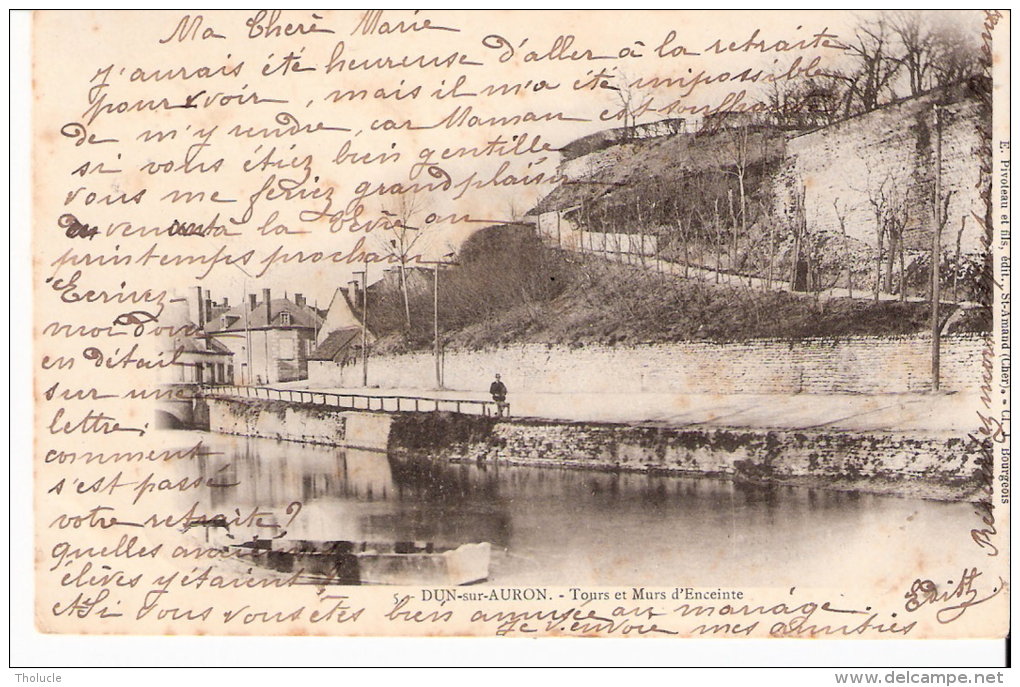 Ma Cherè Marie
J'aurais été heureuse d'aller à la retraite
pour voir, mais il m'a été impossible
de m'y rendre, car Maman est souffrante
si vous étiez bien gentille
vous me feriez grand plaisir
en venant à la
au
printemps prochain
Écrivez
moi donc
en détail
sur une
lettre.
comment
s'est passé
votre retraite?
quelles
élèves y étaient
et si vous vous êtes bien amusée au mariage.
Je vous envoie mes amitiés
Edith
E. Pivoteau et fils, édit., St-Amand (Cher). - Cl. Bourgeois
5. DUN-sur-AURON. - Tours et Murs d'Enceinte
Tholucle
www.delcampe.net